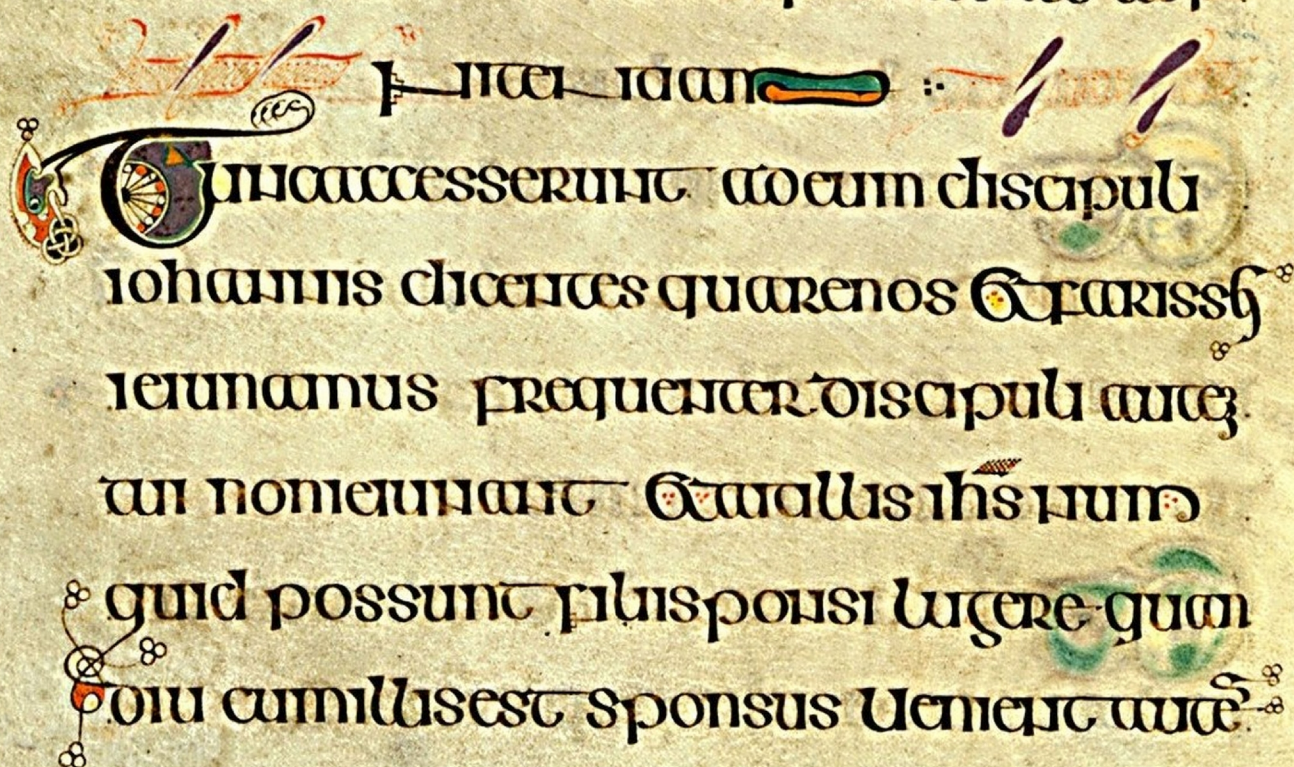 nitentiam
Tuncaccesserunt adeum discipuli
iohannis dicentes quarenos & farissei
ieiunamus frequenter discipuli autem
tui nonieiunant & aitillis ihs num
quid possunt filiisponsi lugere quam
diu cumillisest sponsus Uenient aute